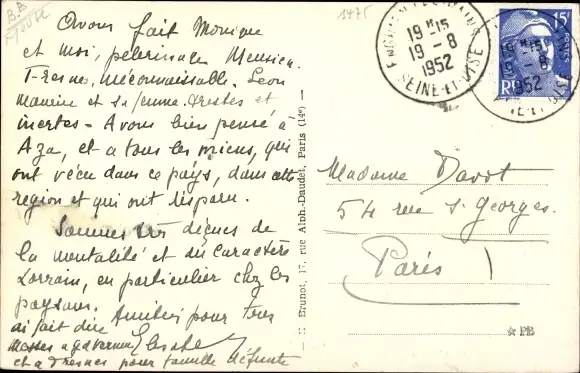 Avons fait Monique
et moi, pèlerinage Meusien.
Fresnes, méconnaissable. Léon
Maurice et sa femme, tristes et
inertes - Avons bien pensé à
Aza, et à tous les miens, qui
ont vécu dans ce pays, dans cette
région et qui ont disparu.
Sommes très déçues de
la mentalité et du caractère
Lorrain, en particulier chez les
paysans. Amitiés pour tous
ai fait dire
messes à
et à Fresnes pour famille défunte
Erunot, 17, rue Alph.-Daudet, Paris (14e)
1475
19 H 15
19 - 8
1952
SEINE-ET-OISE
15F
POSTES
RF
19 H 15
19 - 8
1952
Madame Davot
54 rue St Georges.
Paris
PB